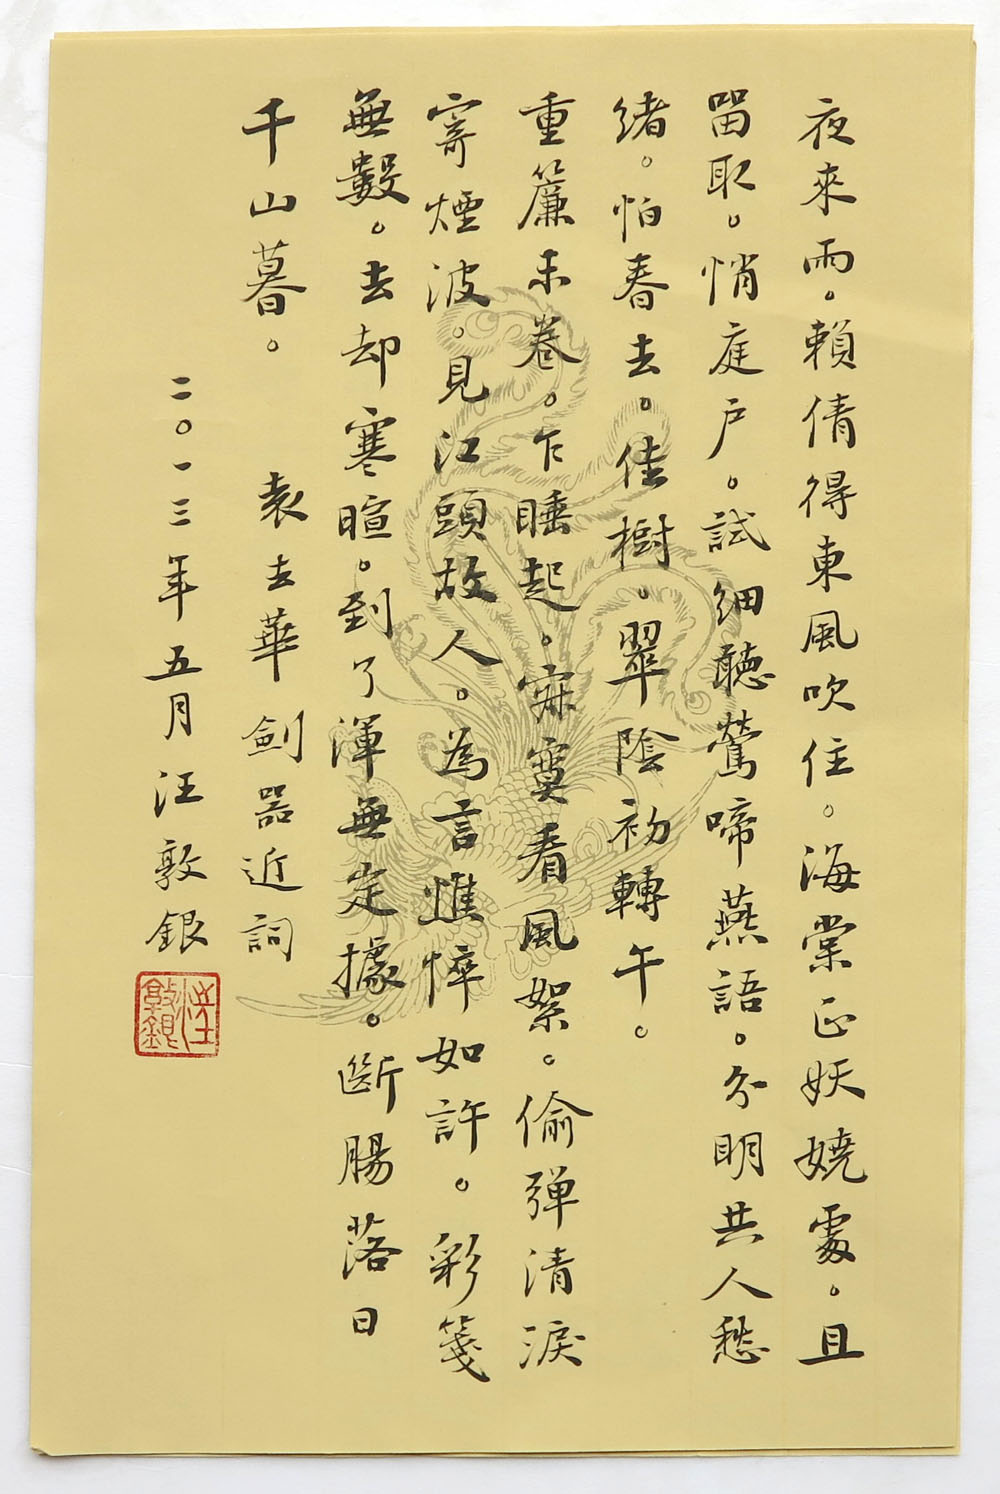 夜來雨。賴倩得東風吹住。海棠正妖嬈處。且
留取。悄庭户。試細聽鶯啼燕語。分明共人愁
緒。怕春去。佳樹。翠陰初轉午。
重簾未卷。乍睡起。寂寞看風絮。偷弹清淚
寄煙波。見江頭故人。為言憔悴如許。彩箋
無數。去却寒暄。到了渾無定據。斷腸落日
千山暮。
袁去華 劍器近詞
二〇一三年五月汪敦銀
汪敦銀